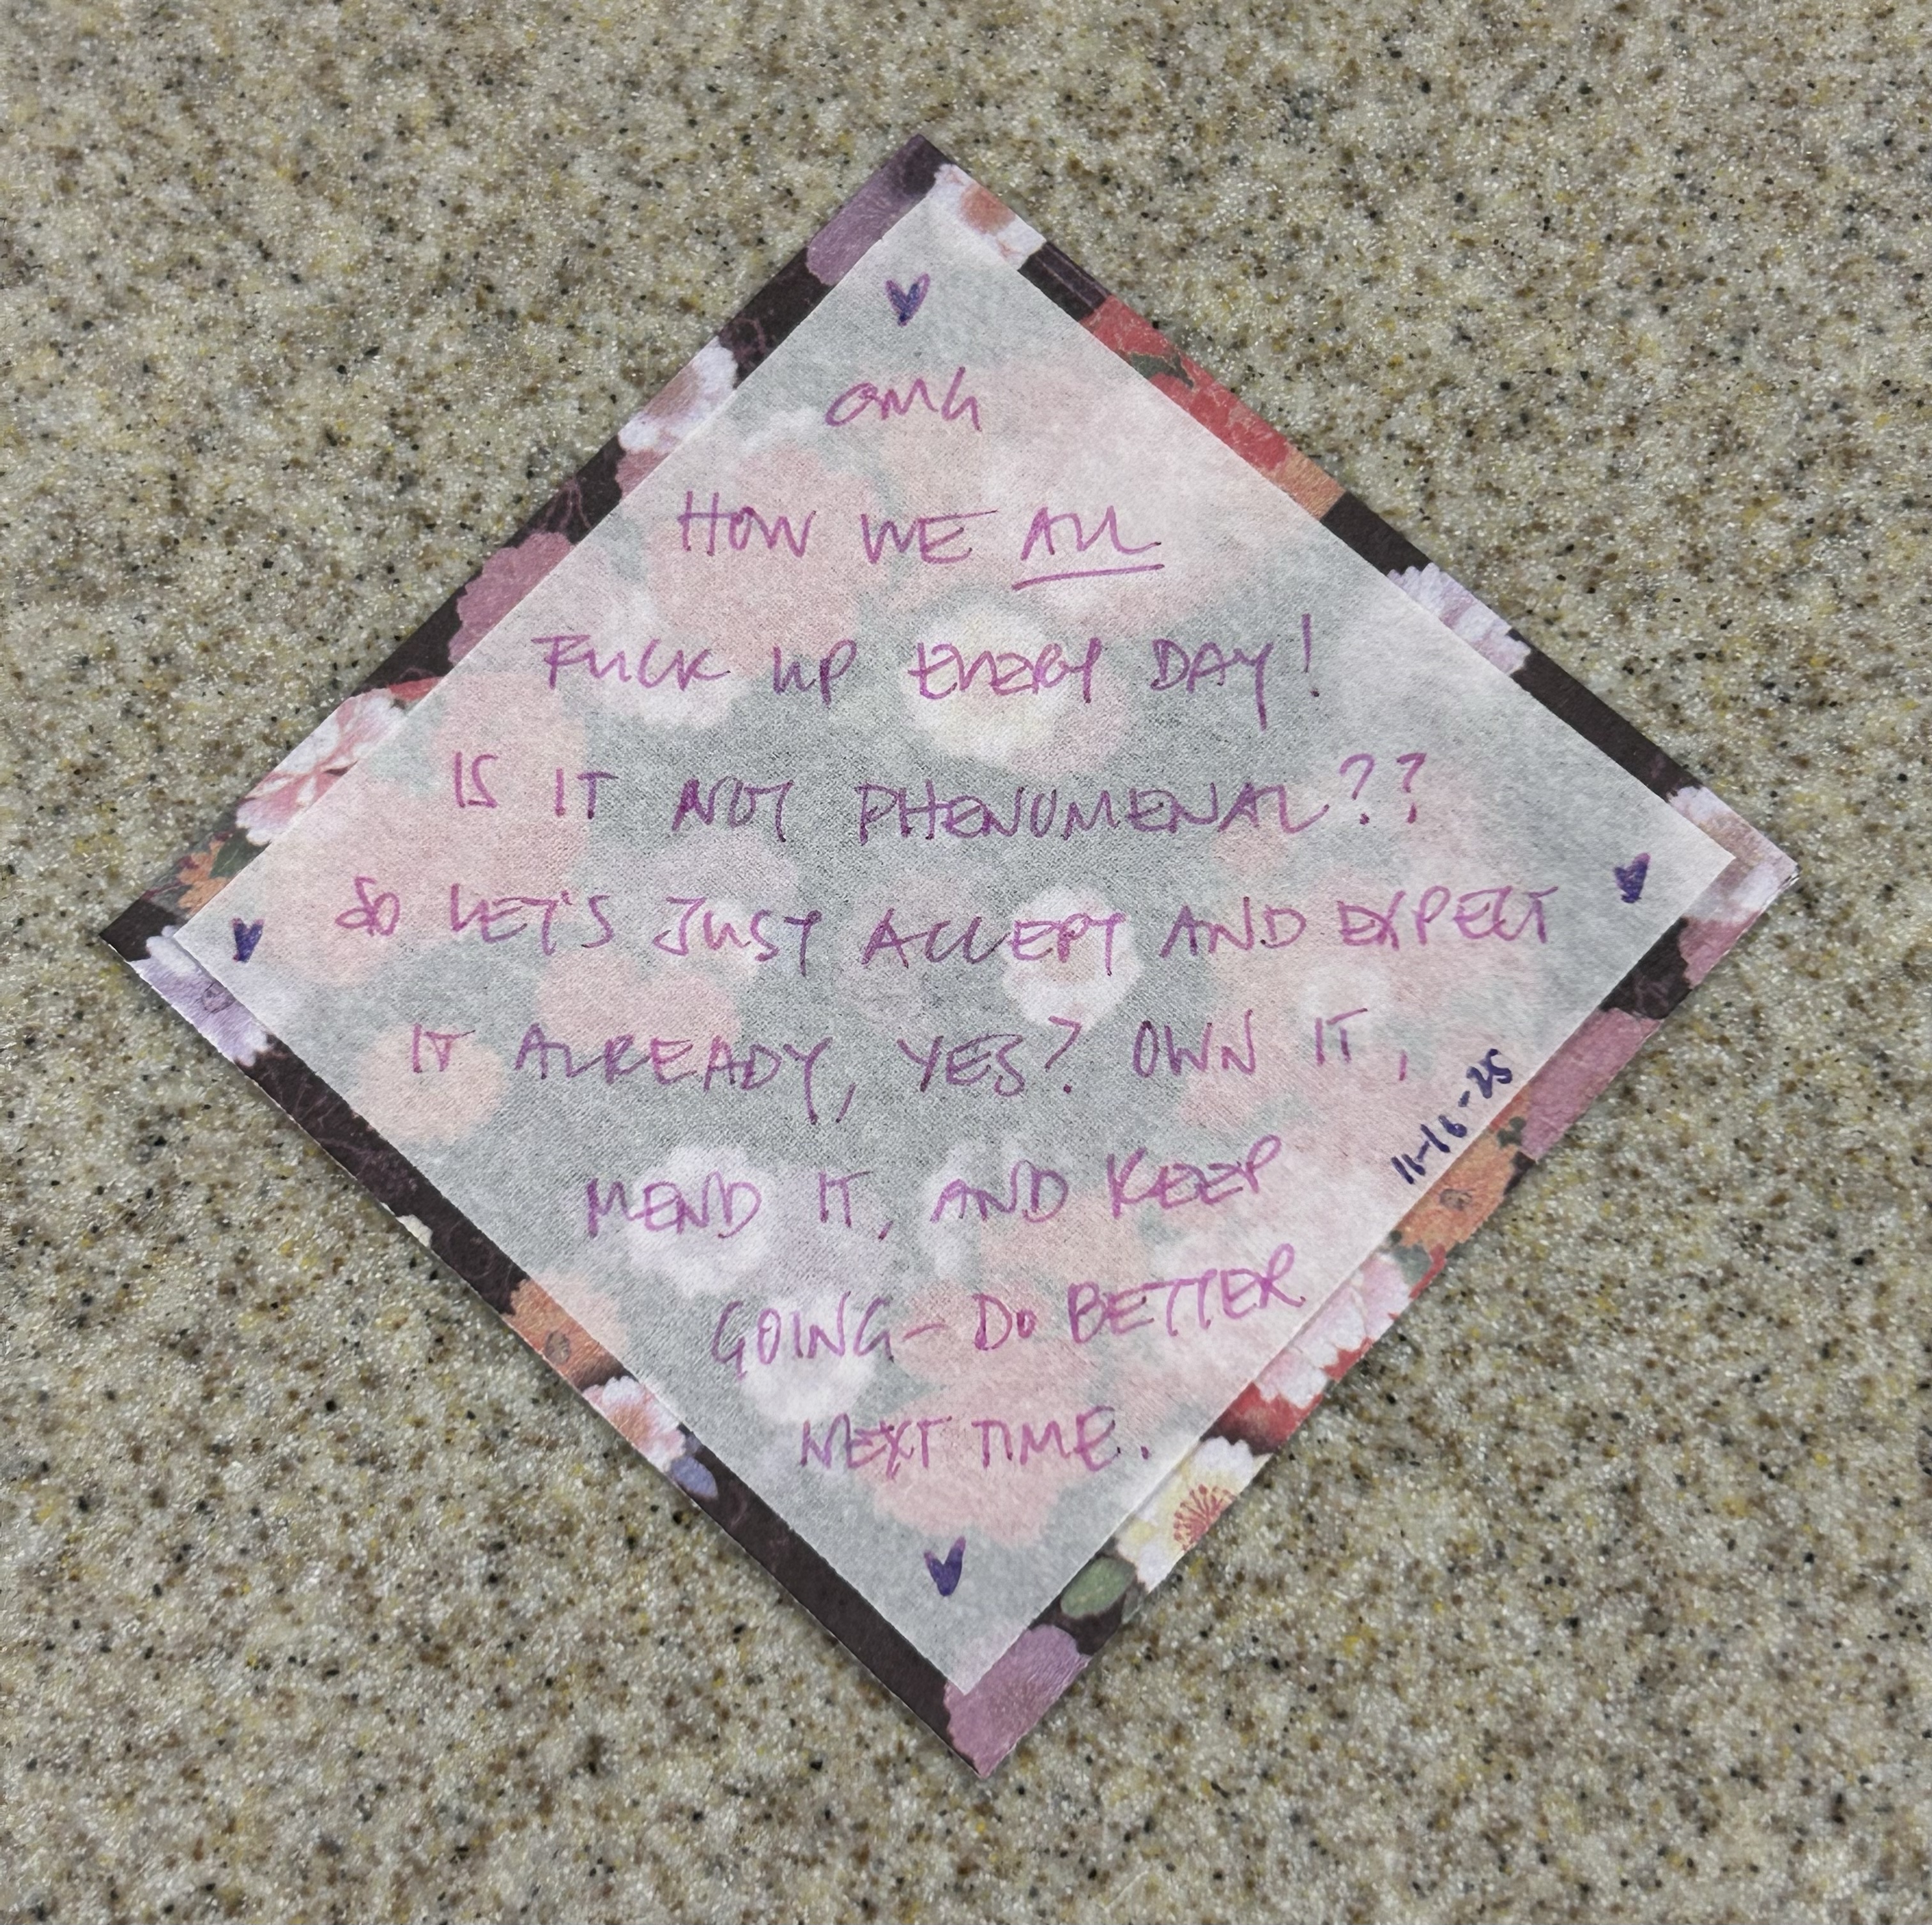 OMG
HOW WE ALL
FUCK UP EVERY DAY!
IS IT NOT PHENOMENAL??
SO LET'S JUST ACCEPT AND EXPECT
IT ALREADY, YES? OWN IT,
MEND IT, AND KEEP
GOING - DO BETTER
NEXT TIME.
11-16-25